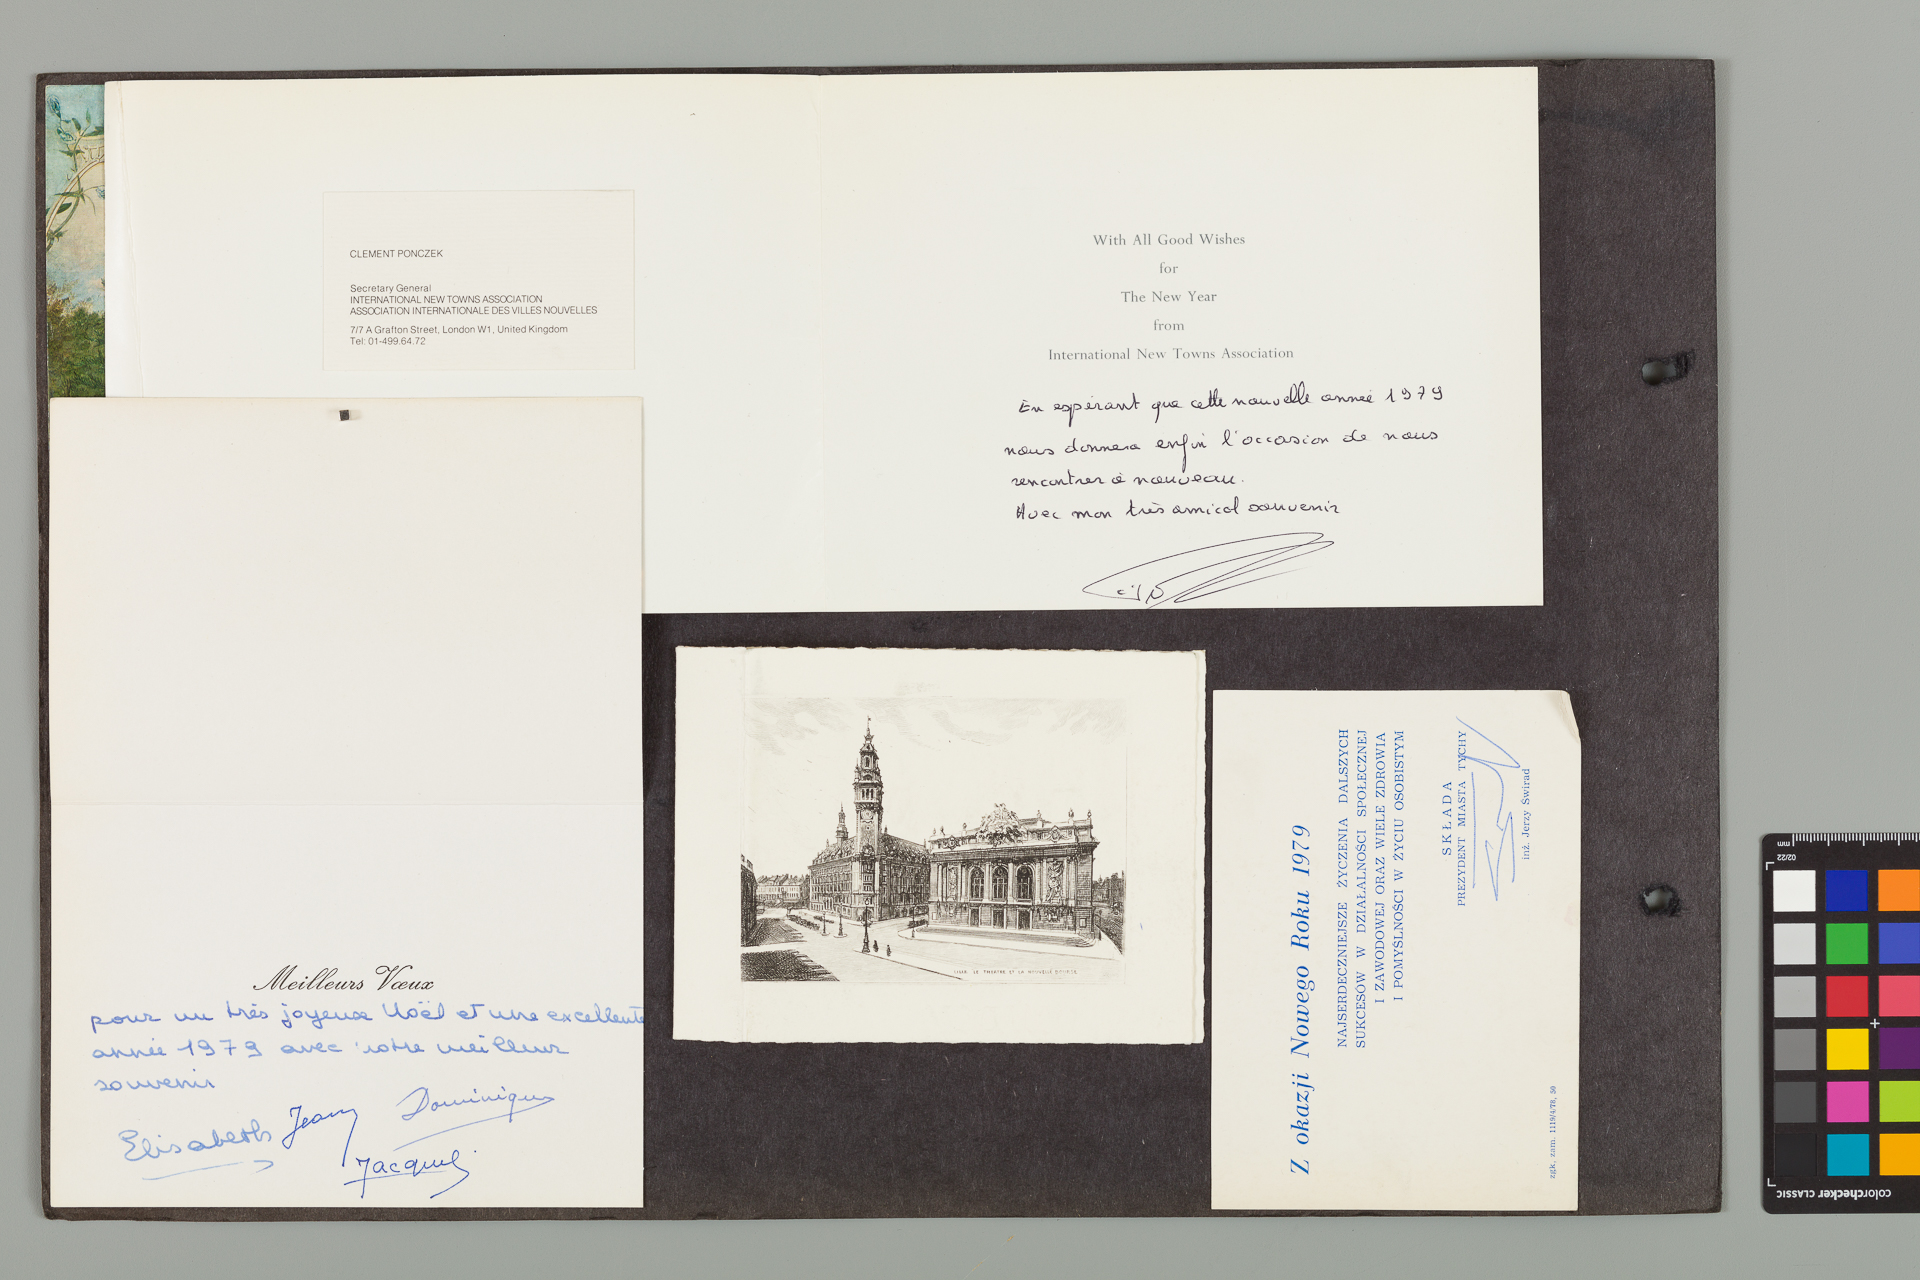 CLEMENT PONCZEK
Secretary General
INTERNATIONAL NEW TOWNS ASSOCIATION
ASSOCIATION INTERNATIONALE DES VILLES NOUVELLES
7/7 A Grafton Street, London W1, United Kingdom
Tel: 01-499.64.72
With All Good Wishes
for
The New Year
from
International New Towns Association
En espérant que cette nouvelle année 1979
nous donnera enfin l'occasion de nous
rencontrer à nouveau.
Avec mon très amical souvenir
Meilleurs Vœux
pour un très joyeux Noël et une excellente
année 1979 avec notre meilleur
souvenir
Elisabeth Jean Dominique
Jacques
LILLE. LE THEATRE ET LA NOUVELLE BOURSE
Z okazji Nowego Roku 1979
NAJSERDECZNIEJSZE ŻYCZENIA DALSZYCH
SUKCESÓW W DZIAŁALNOŚCI SPOŁECZNEJ
I ZAWODOWEJ ORAZ WIELE ZDROWIA
I POMYŚLNOŚCI W ŻYCIU OSOBISTYM
SKŁADA
PREZYDENT MIASTA TYCHY
inż. Jerzy Świrad
zgk. zam. 1119/4/78, 50
mm
02/22
colorchecker CLASSIC